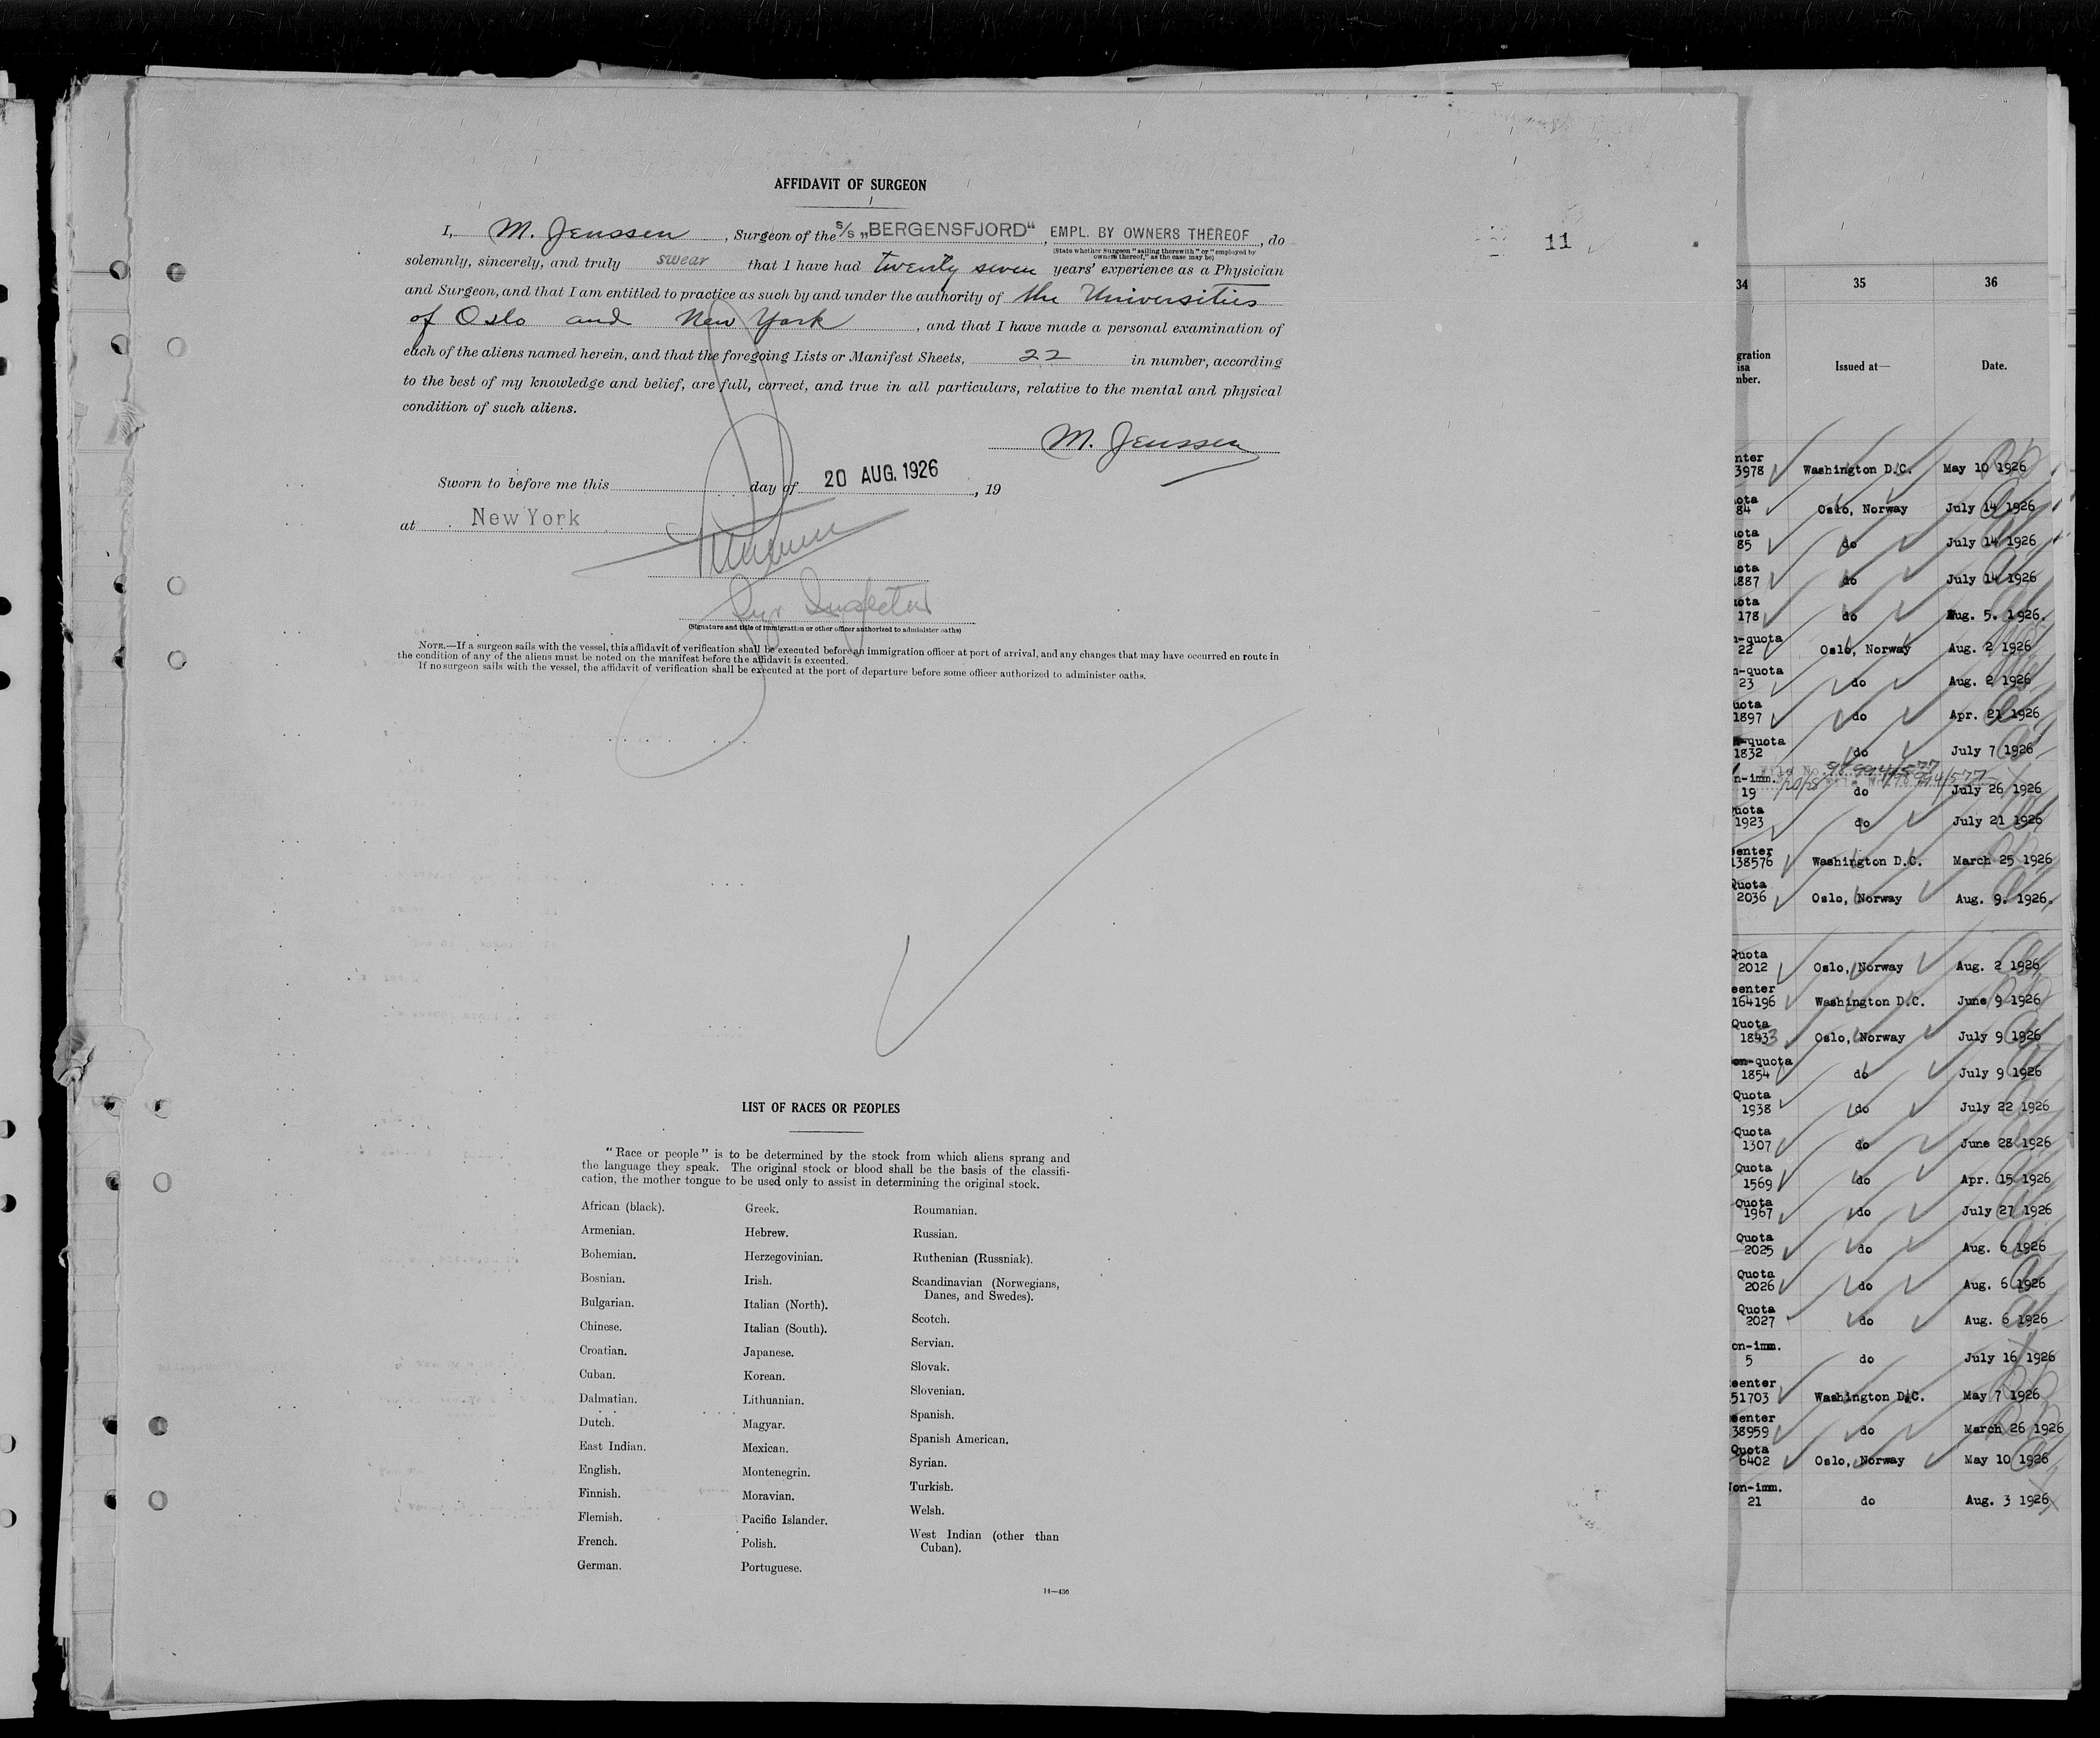 AFFIDAVIT OF SURGEON
I, M. Jenssen, Surgeon of the S/S „BERGENSFJORD“, EMPL. BY OWNERS THEREOF, do
(State whether Surgeon "sailing therewith" or "employed by
owners thereof," as the case may be)
solemnly, sincerely, and truly swear that I have had twenty seven years' experience as a Physician
and Surgeon, and that I am entitled to practice as such by and under the authority of the Universities
of Oslo and New York, and that I have made a personal examination of
each of the aliens named herein, and that the foregoing Lists or Manifest Sheets, 22 in number, according
to the best of my knowledge and belief, are full, correct, and true in all particulars, relative to the mental and physical
condition of such aliens.
M. Jenssen
Sworn to before me this day of 20 AUG. 1926, 19
at New York
Inspector
(Signature and title of immigration or other officer authorized to administer oaths)
NOTE.—If a surgeon sails with the vessel, this affidavit of verification shall be executed before an immigration officer at port of arrival, and any changes that may have occurred en route in
the condition of any of the aliens must be noted on the manifest before the affidavit is executed.
If no surgeon sails with the vessel, the affidavit of verification shall be executed at the port of departure before some officer authorized to administer oaths.
LIST OF RACES OR PEOPLES
"Race or people" is to be determined by the stock from which aliens sprang and
the language they speak. The original stock or blood shall be the basis of the classifi-
cation, the mother tongue to be used only to assist in determining the original stock.
African (black).
Armenian.
Bohemian.
Bosnian.
Bulgarian.
Chinese.
Croatian.
Cuban.
Dalmatian.
Dutch.
East Indian.
English.
Finnish.
Flemish.
French.
German.
Greek.
Hebrew.
Herzegovinian.
Irish.
Italian (North).
Italian (South).
Japanese.
Korean.
Lithuanian.
Magyar.
Mexican.
Montenegrin.
Moravian.
Pacific Islander.
Polish.
Portuguese.
Roumanian.
Russian.
Ruthenian (Russniak).
Scandinavian (Norwegians,
Danes, and Swedes).
Scotch.
Servian.
Slovak.
Slovenian.
Spanish.
Spanish American.
Syrian.
Turkish.
Welsh.
West Indian (other than
Cuban).
14—436
11
34 35 36
gration
isa
nber.
Issued at— Date.
nter
3978 Washington D.C. May 10 1926
ota
84 Oslo, Norway July 14 1926
uota
85 do July 14 1926
uota
887 do July 14 1926
uota
178 do Aug. 5. 1926.
n-quota
22 Oslo, Norway Aug. 2 1926
n-quota
23 do Aug. 2 1926
uota
1897 do Apr. 21 1926
-quota
1832 do July 7 1926
File No. 98994/577
n-imm.
19 do July 26 1926
uota
1923 do July 21 1926
enter
138576 Washington D.C. March 25 1926
Quota
2036 Oslo, Norway Aug. 9. 1926.
Quota
2012 Oslo, Norway Aug. 2 1926
eenter
164196 Washington D.C. June 9 1926
Quota
1843 Oslo, Norway July 9 1926
on-quota
1854 do July 9 1926
Quota
1938 do July 22 1926
Quota
1307 do June 28 1926
Quota
1569 do Apr. 15 1926
Quota
1967 do July 27 1926
Quota
2025 do Aug. 6 1926
Quota
2026 do Aug. 6 1926
Quota
2027 do Aug. 6 1926
on-imm.
5 do July 16 1926
eenter
51703 Washington D.C. May 7 1926
eenter
38959 do March 26 1926
Quota
6402 Oslo, Norway May 10 1926
Non-imm.
21 do Aug. 3 1926